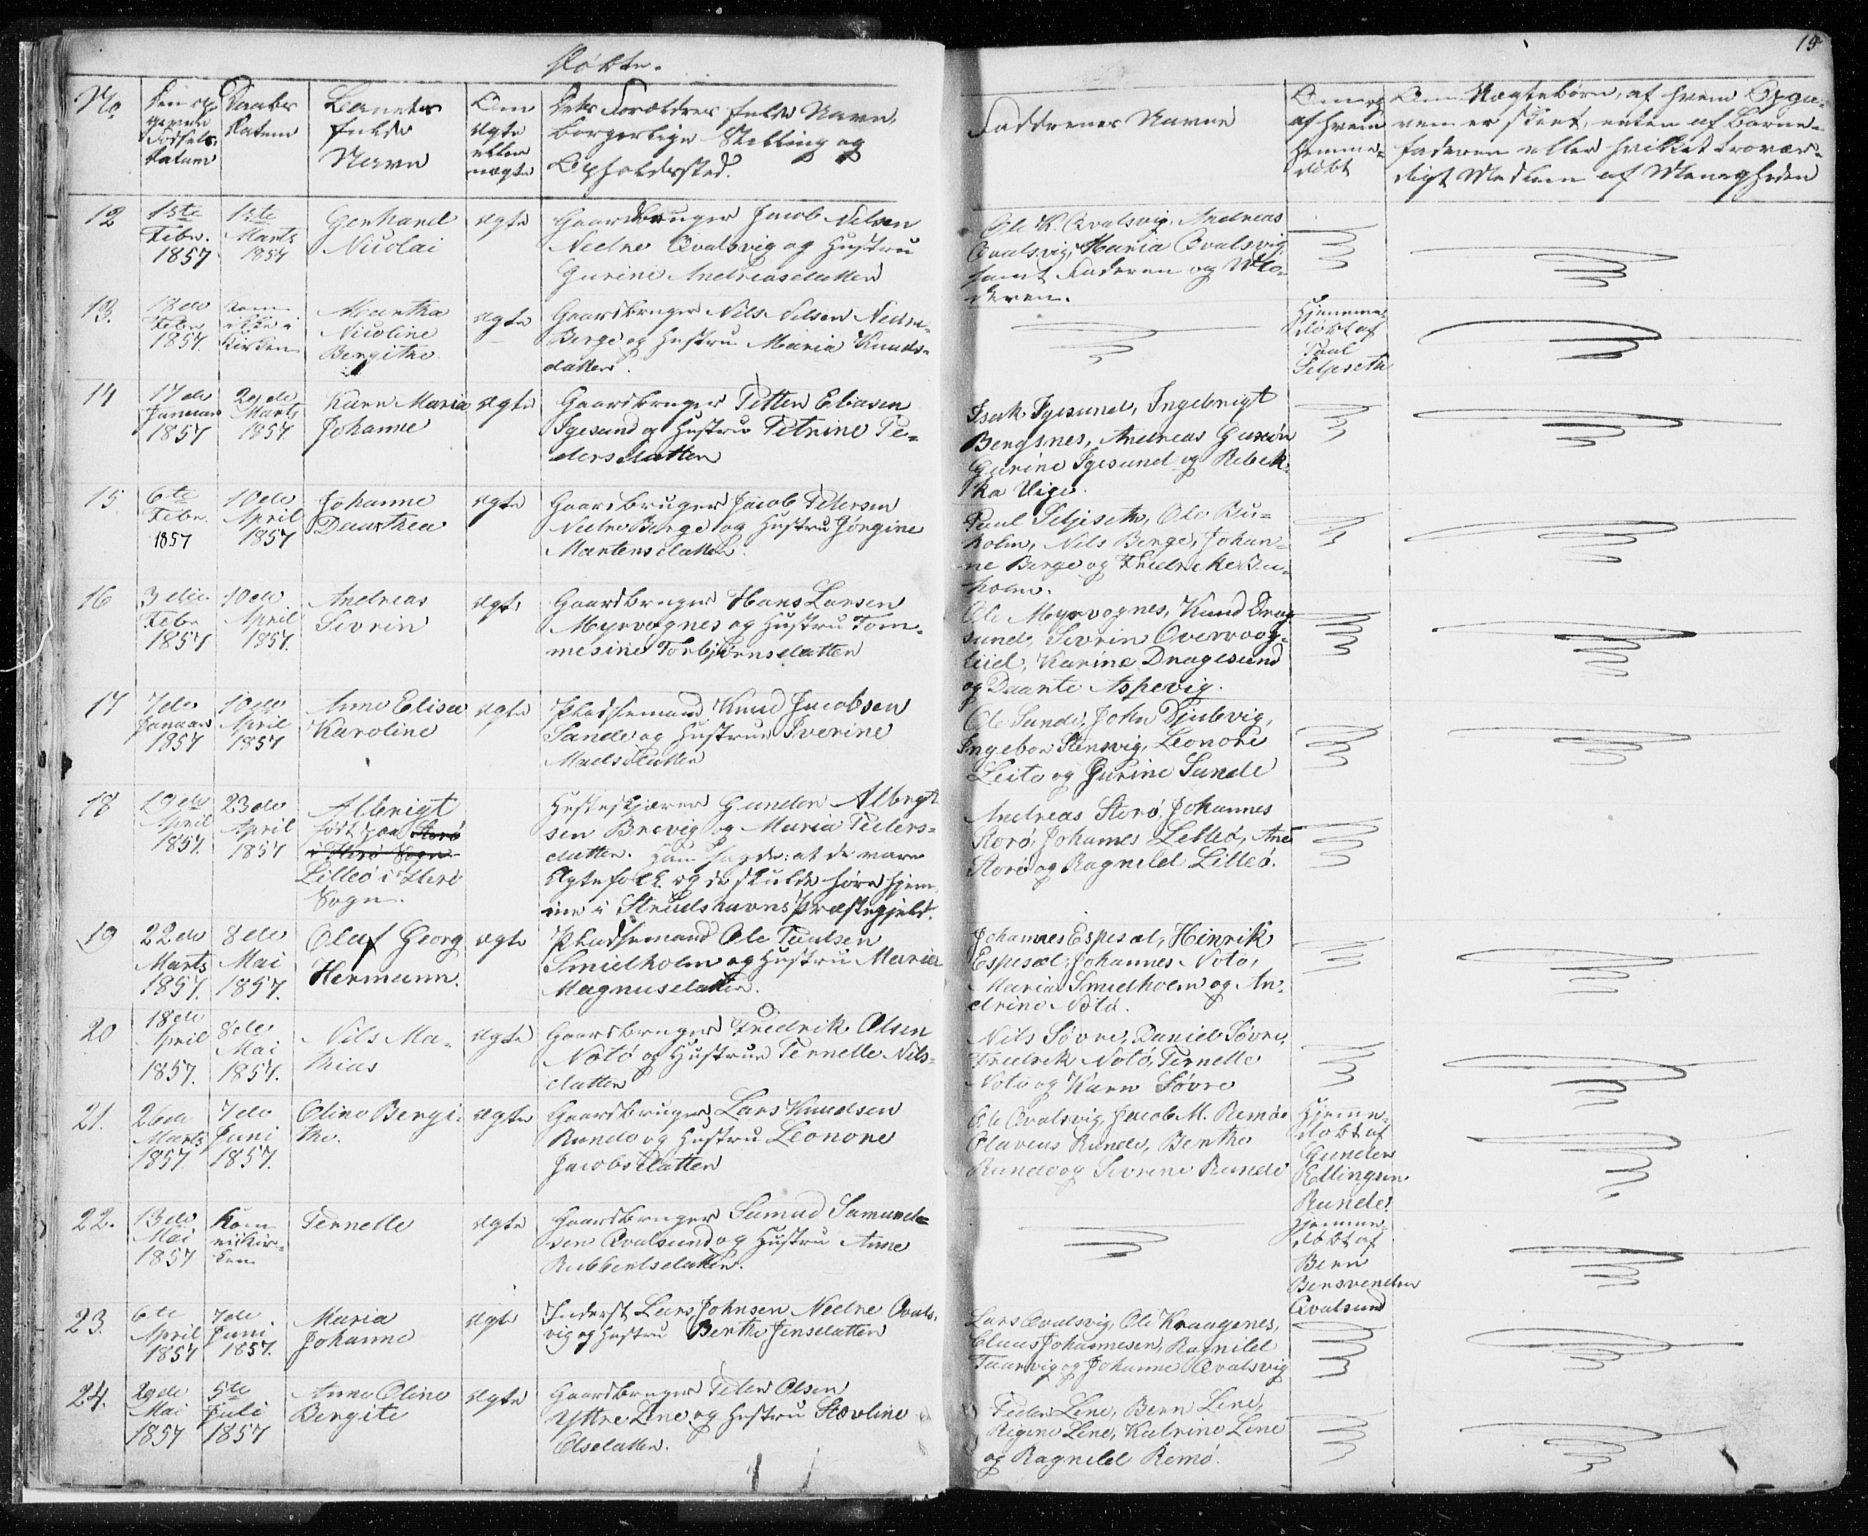 Døbte.
19
No
Den op-
givne
Fødsels
Datum
Daabs
Datum
Barnets
fulde
Navn
Om
ægte
eller
uægte
Dets Forældres fulde Navn,
borgerlige Stilling og
Opholdssted.
Faddrenes Navne
Om og
af hvem
hjemme-
døbt
Om Uægtebørn, af hvem Opgi-
ven er skeet, enten af Barne-
faderen eller hvilket troevær-
digt Medlem af Menigheden
12
1ste
Febr.
1857
1ste
Marts
1857
Gerhard
Nicolai
ægte
Gaardbruger Jacob Nilsen
Nedre Qvalsvig og Hustru
Gurine Andreasdatter
Ole K. Qvalsvig, Andreas
Qvalsvig, Maria Qvalsvig
samt Faderen og Mo-
deren.
13.
Febr
1857.
kom
ikke i
Kirken
Martha
Nicoline
Bergithe.
ægte
Gaardbruger Nils Nilsen Nedre
Berge og Hustru Maria Knuds-
datter.
Hjemme-
døbt af
Paul
Seljeseth
14
17de
Januar
1857
29de
Marts
1857
Karn Maria
Johanne
ægte
Gaardbruger Petter Eliasen
Igesund og Hustru Petrine Pe-
dersdatter
Isak Igesund, Ingebrigt
Bergsnes, Andreas
Gurine Igesund og Rebek-
ka Vige.
15.
6te
Febr.
1857
10de
April
1857
Johanne
Daarthea
ægte
Gaardbruger Jacob Petersen
Nedre Berge og Hustru Jørgine
Martensdatter.
Paul Seljeseth, Ole Bu-
holm, Nils Berge, Johan-
ne Berge og Fredrikke Bu-
holm.
16
3die
Febr
1857
10de
April
1857.
Andreas
Sevrin
ægte
Gaardbruger Hans Larsen
Myrvognes og Hustru Tom-
mesine Torbjørnsdatter
Ole Myrvognes, Knud Drag
sund, Sevrin Overvoog-
lied, Karine Dragesund
og Daarte Aspevig.
17
7de
Januar
1857
10de
April
1857
Anne Elisa
Karoline
ægte
Pladsemand Knud Jacobsen
Sande og Hustrue Iverine
Madsdatter
Ole Sande, John Djubvig,
Ingebor Stensvig, Leonore
Leite og Gurine Sande
18
19de
April
1857.
23de
April
1857
Albrigt
født paa Storø
i Herø Sogn
Lilleø i Herø
Sogn.
Hesteskjærer Gunder Albregt
sen Brevig og Maria Peders-
datter. Han sagde: at de vare
Ægtefolk og de skulde høre hjem-
me i Stredshavns Præstegjeld.
Andreas Storø, Johannes
Storø, Johannes Lilleø, Ane
Storø og Ragnild Lilleø.
19
22de
Marts
1857.
8de
Mai
1857.
Oluf Georg
Hermann.
ægte
Pladsemand Ole Paulsen
Smielholm og Hustru Maria
Magnusdatter.
Johannes Espesæt, Hinrik
Espesæt, Johannes Notø,
Maria Smielholm og An-
drine Notø.
20
18de
April
1857.
8de
Mai
1857.
Nils Ma-
thias
ægte
Gaardbruger Fredrik Olsen
Notø og Hustrue Pernelle Nils-
datter
Nils Søvre, Daniel Søvre,
Fredrik Notø, Pernelle
Notø og Karn Søvre
21.
26de
Marts
1857.
7de
Juni
1857.
Oline Bergi-
the.
ægte
Gaardbruger Lars Knudsen
Runde og Hustru Leonore
Jacobsdatter
Ole Qvalsvig, Jacob M. Remøe
Olavius Runde, Berthe
Runde og Sevrine Runde
Hjemme-
døbt af
Gunder
Ellingsen
Runde.
22.
13de
Mai
1857
Kom
ei i Kir-
ken
Pernelle
ægte
Gaardbruger Samud Samund-
sen Qvalsund og Hustru Anne
Rubbertsdatter.
Hjemme-
døbt af
Bern
Bensvendsen
Qvalsund
23.
6te
April
1857
7de
Juni
1857.
Maria
Johanne
ægte
Inderst Lars Johnsen Nedre Qvals-
vig og Hustru Berthe Jensdatter
Lars Qvalsvig, Ole Kraagenes,
Claus Johannesen, Ragnild
Taarvig og Johanne Qvalsvig
24.
29de
Mai
1857
5te
Juli
1857
Anne Oline
Bergite
ægte
Gaardbruger Peder Olsen
Yttre Line og Hustru Stævline
Olsdatter.
Peder Line, Bern Line,
Regine Line, Katrine Line
og Ragnild Remø.